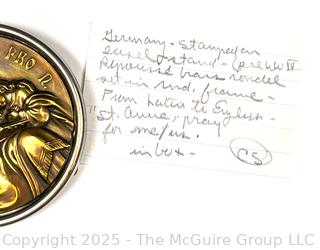 PRO N
Germany - stamped on
easel stand - (pre WW II
Repoussé brass rondel
set in rnd. frame -
From Latin to English -
"St. Anne, pray
for me/us.
in box -
CS
Copyright 2025 - The McGuire Group LLC